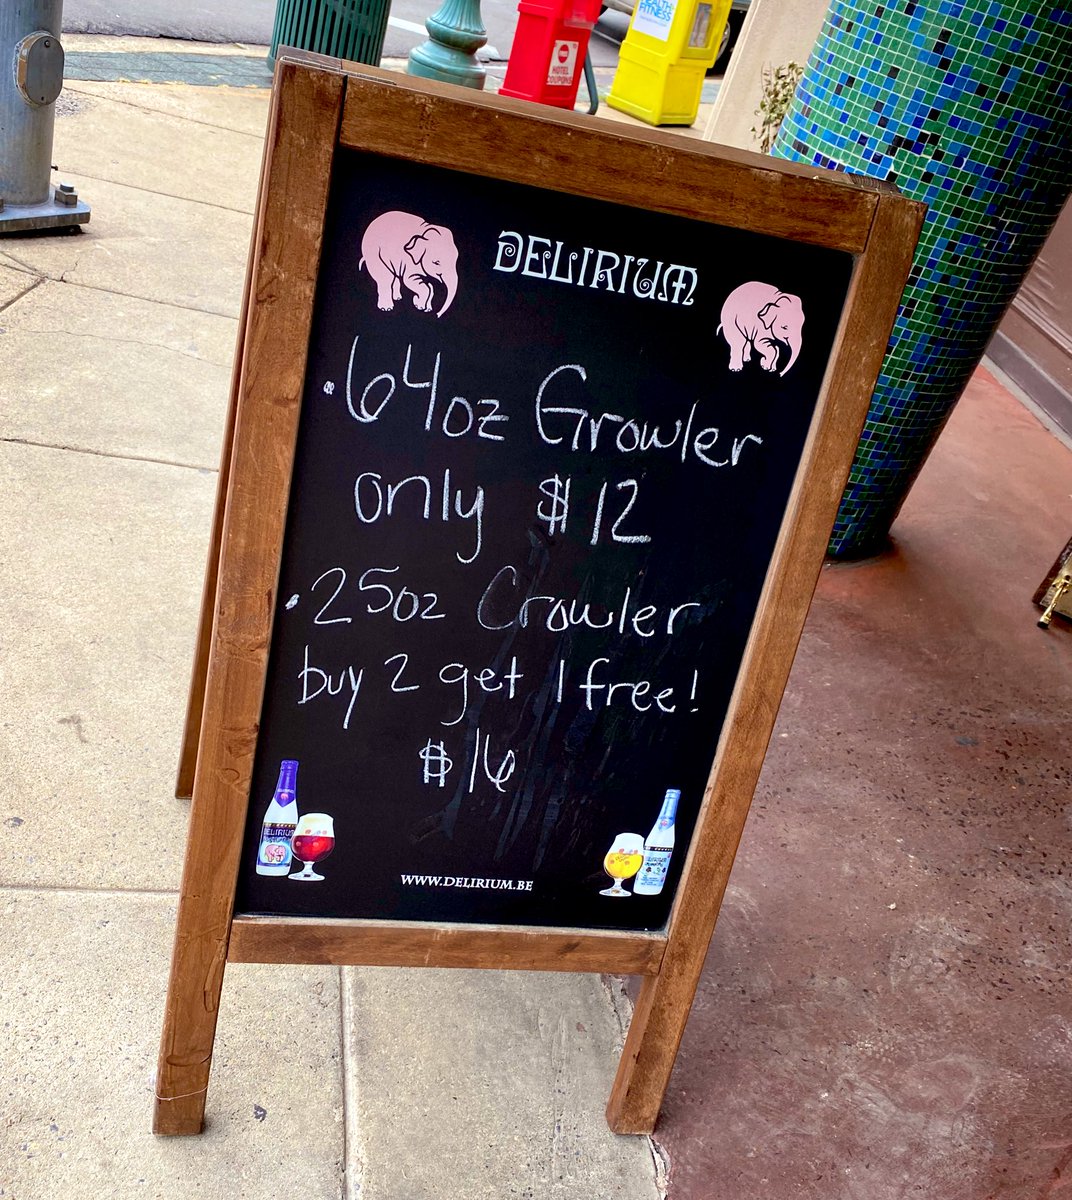 HEALTH+
FITNESS
HOTEL
COUPONS
DELIRIUM
.64oz Growler
only $12
.25oz Crowler
buy 2 get 1 free!
$16
DELIRIUM
WWW.DELIRIUM.BE